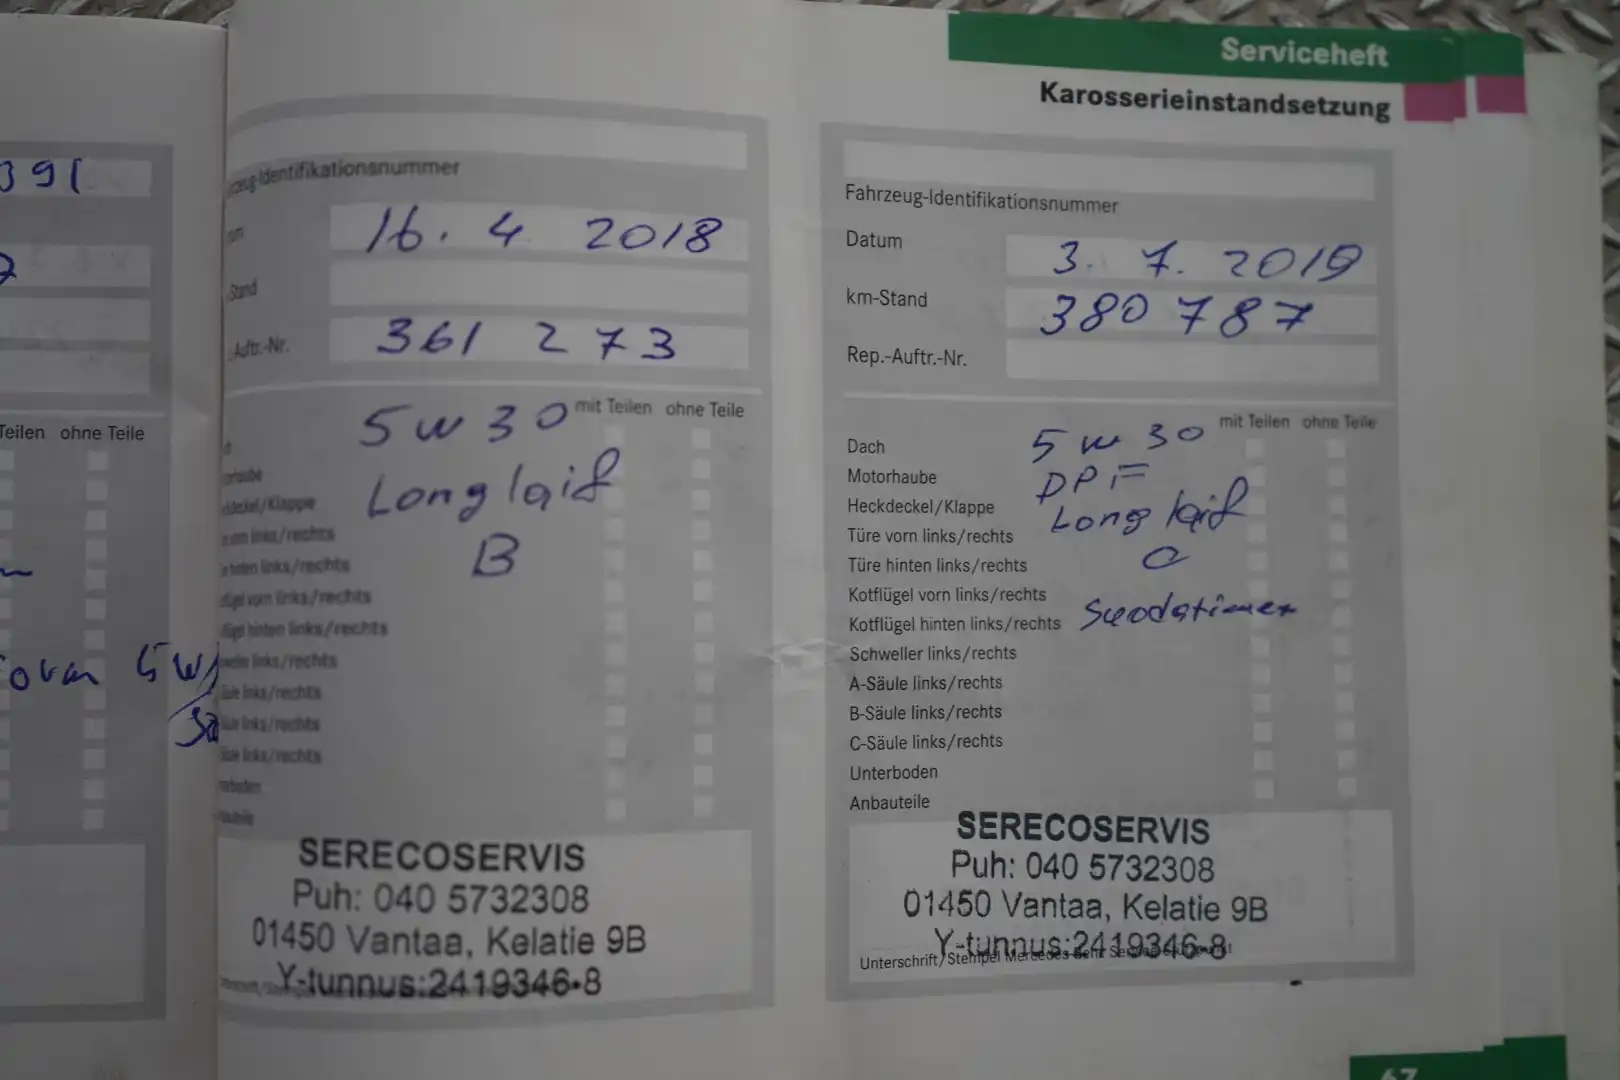 Serviceheft
Karosserieinstandsetzung
391
Teilen ohne Teile
5W/
Identifikationsnummer
16. 4 2018
Stand
Auftr.-Nr. 361 273
mit Teilen ohne Teile
5W30
Longlaif
B
/Klappe
links/rechts
hinten links/rechts
vorn links/rechts
hinten links/rechts
links/rechts
links/rechts
links/rechts
links/rechts
SERECOSERVIS
Puh: 040 5732308
01450 Vantaa, Kelatie 9B
Y-tunnus:2419346-8
Fahrzeug-Identifikationsnummer
Datum 3. 7. 2019
km-Stand 380 787
Rep.-Auftr.-Nr.
mit Teilen ohne Teile
Dach 5W30
Motorhaube DPF
Heckdeckel/Klappe Long laif
Türe vorn links/rechts
Türe hinten links/rechts C
Kotflügel vorn links/rechts
Kotflügel hinten links/rechts
Schweller links/rechts
A-Säule links/rechts
B-Säule links/rechts
C-Säule links/rechts
Unterboden
Anbauteile
SERECOSERVIS
Puh: 040 5732308
01450 Vantaa, Kelatie 9B
Y-tunnus:2419346-8
Unterschrift/Stempel
67